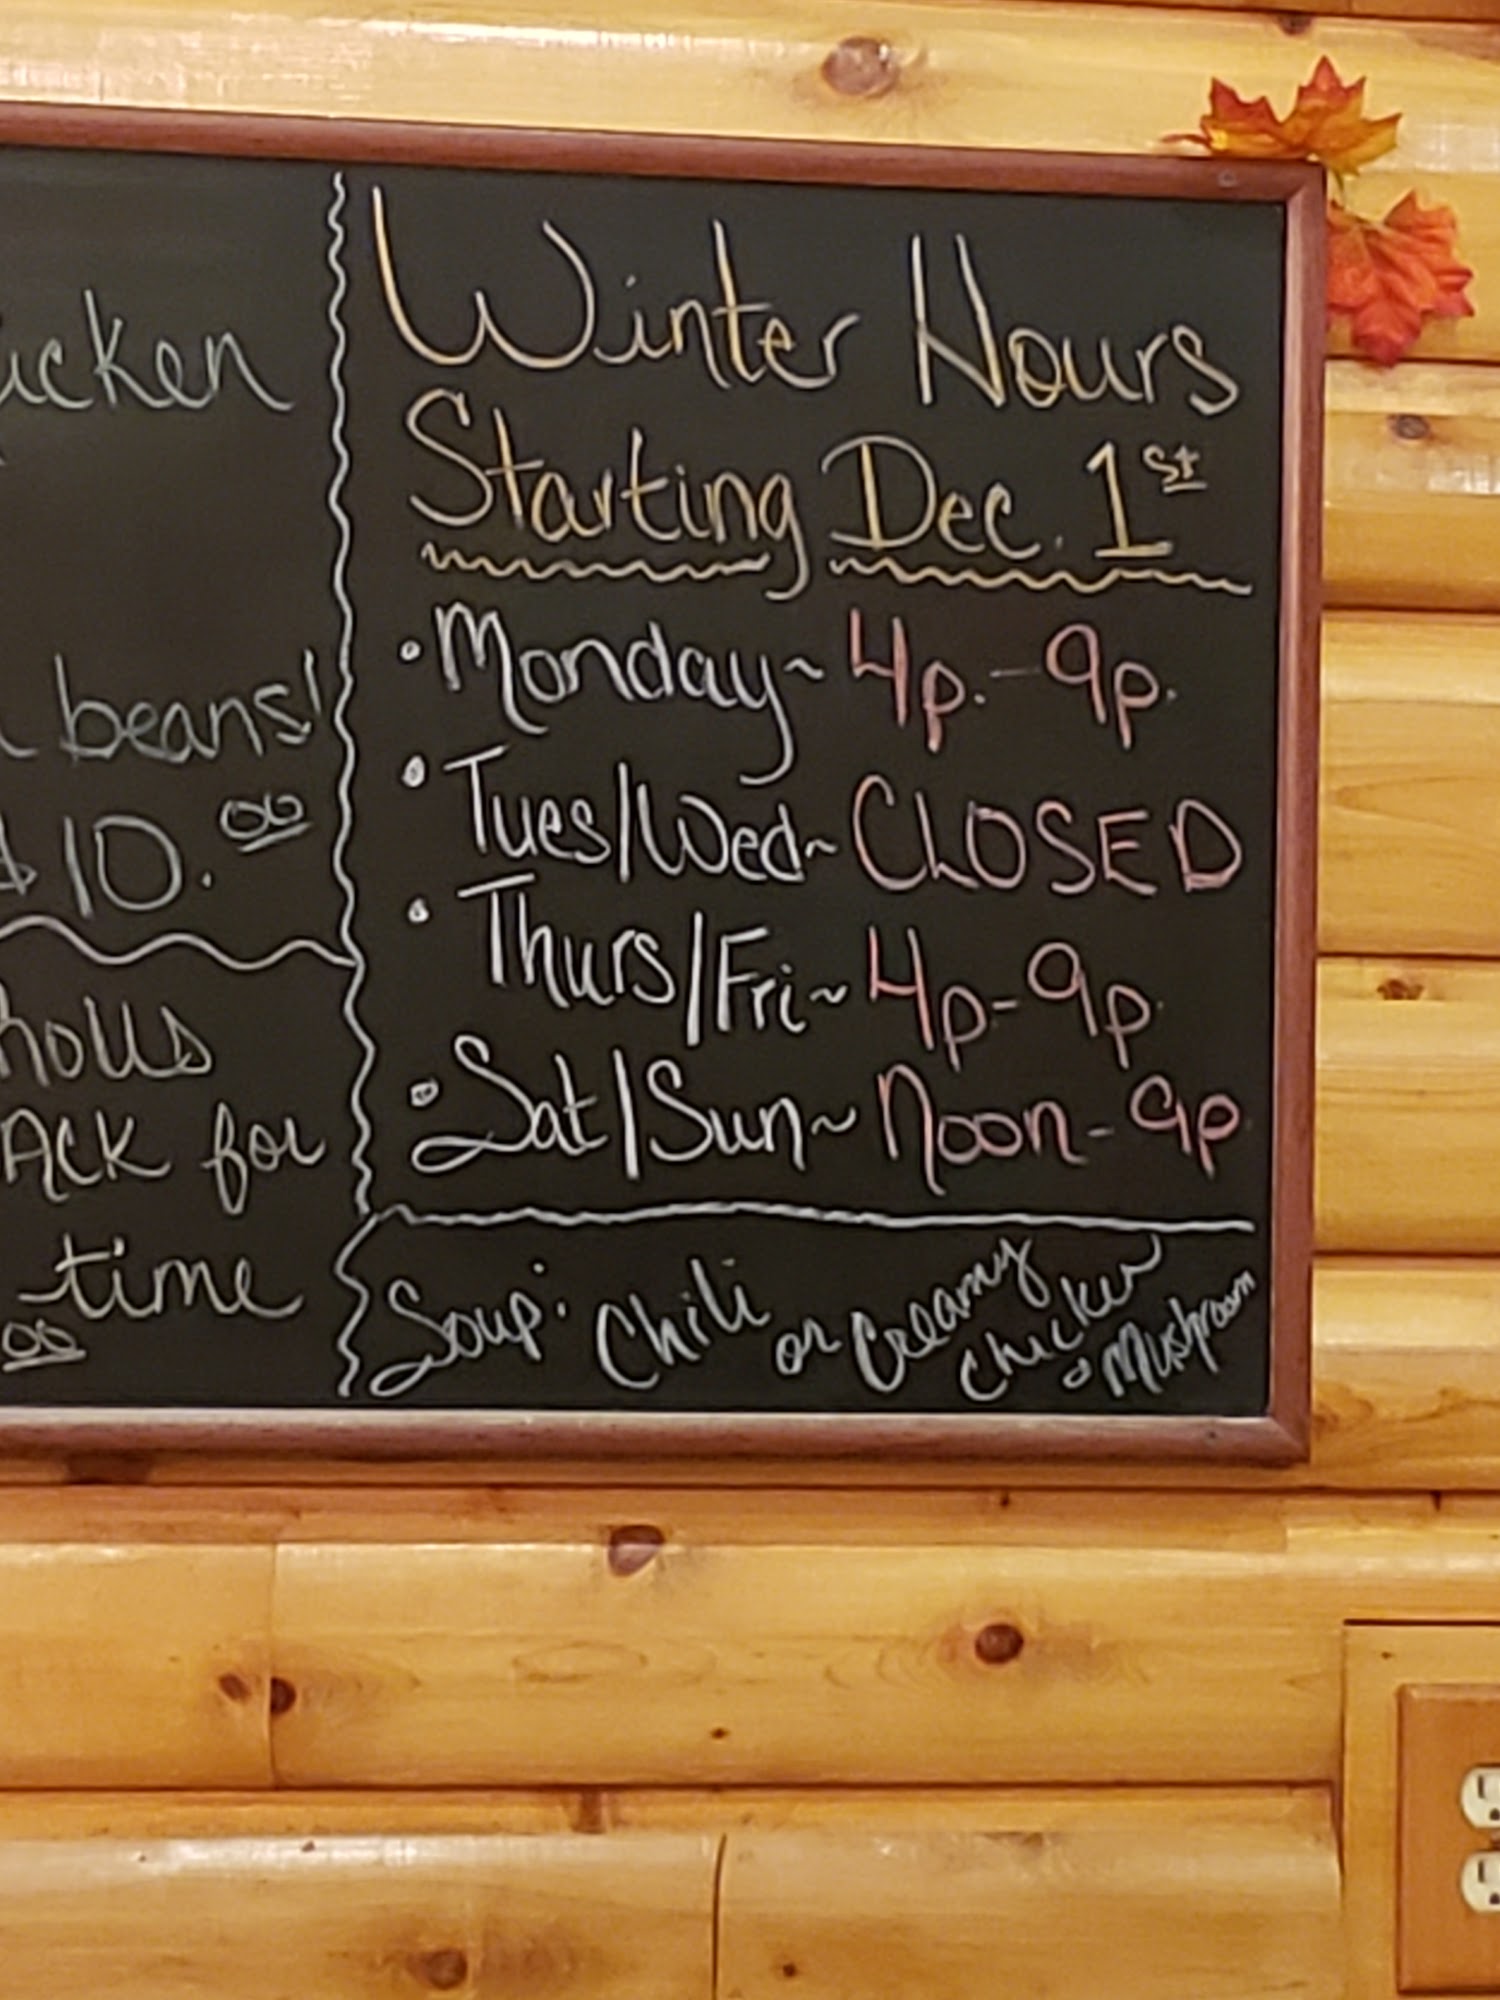 beans!
$10.00
ACK for
time
00
Winter Hours
Starting Dec. 1st
• Monday~ 4p.-9p.
• Tues/Wed~ CLOSED
• Thurs/Fri~ 4p-9p.
• Sat/Sun~ Noon-9p.
Soup: Chili or Creamy
Chicken
Mushroom